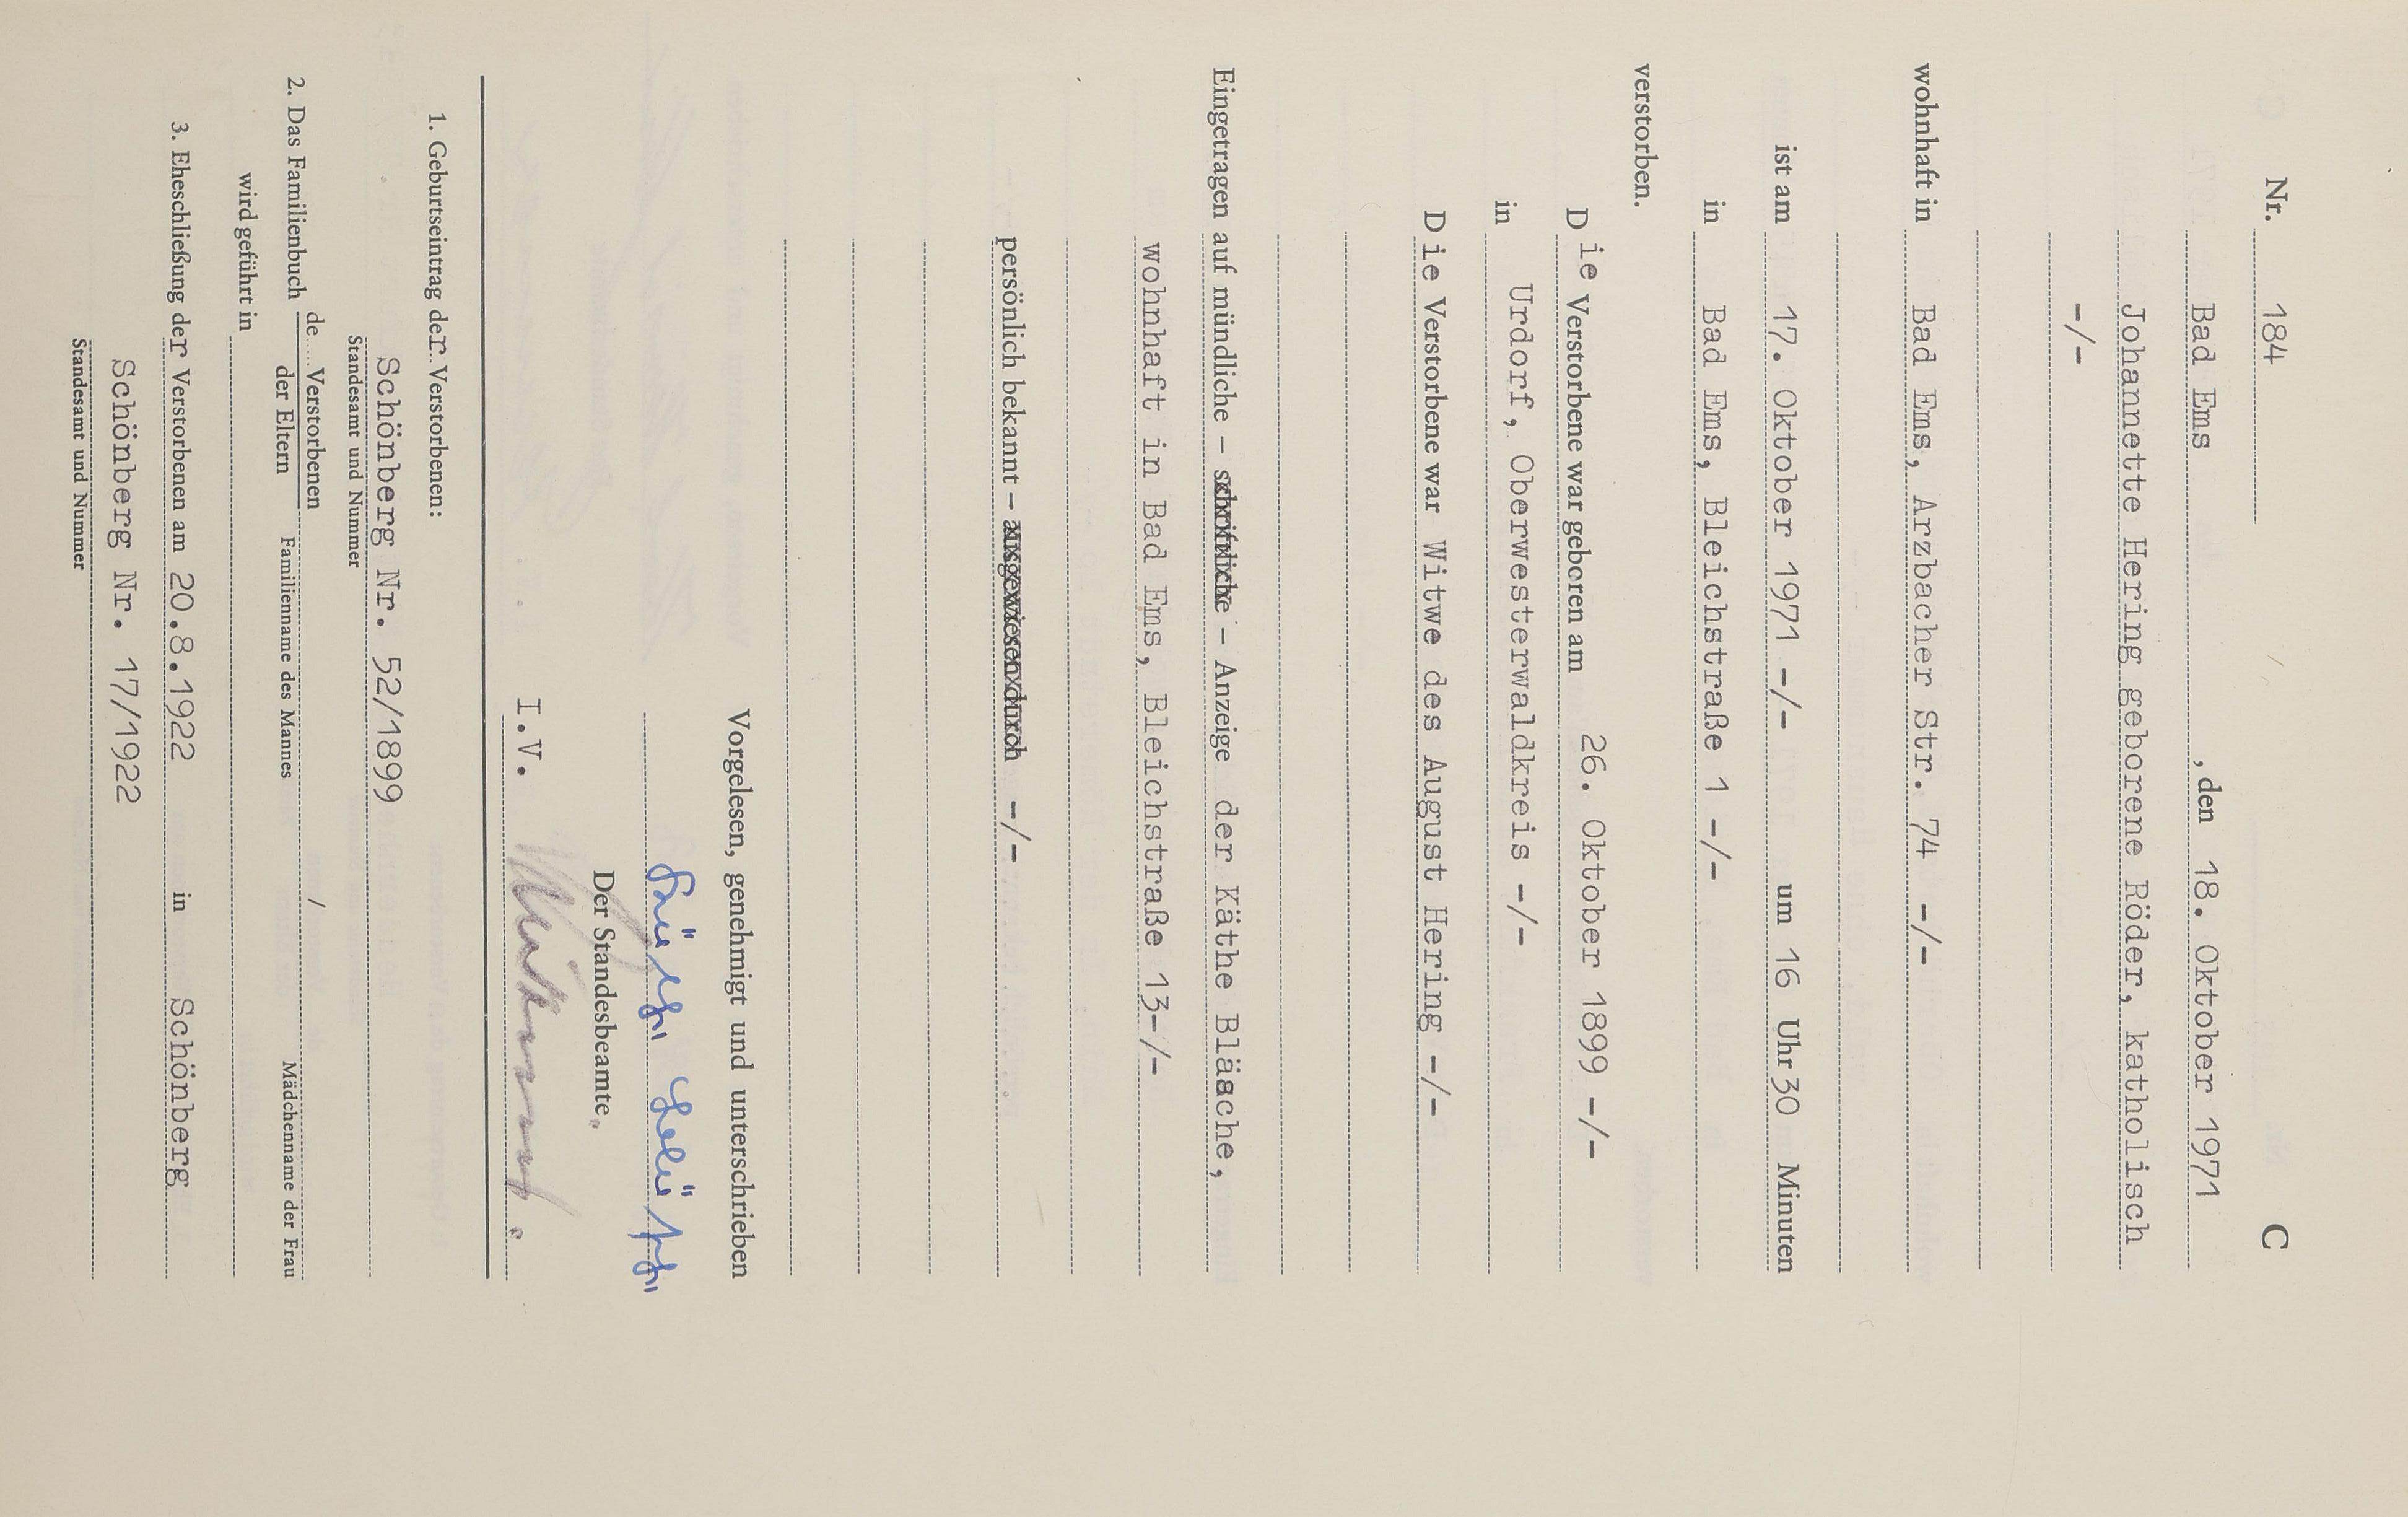 Nr. 184 C
Bad Ems, den 18. Oktober 1971
Johannette Hering geborene Röder, katholisch
-/-
wohnhaft in Bad Ems, Arzbacher Str. 74 -/-
ist am 17. Oktober 1971 -/- um 16 Uhr 30 Minuten
in Bad Ems, Bleichstraße 1 -/-
verstorben.
Die Verstorbene war geboren am 26. Oktober 1899 -/-
in Urdorf, Oberwesterwaldkreis -/-
Die Verstorbene war Witwe des August Hering -/-
Eingetragen auf mündliche – schriftliche – Anzeige der Käthe Bläsche,
wohnhaft in Bad Ems, Bleichstraße 13-/-
persönlich bekannt – ausgewiesen durch -/-
Vorgelesen, genehmigt und unterschrieben
Der Standesbeamte
I.V.
1. Geburtseintrag der Verstorbenen:
Schönberg Nr. 52/1899
Standesamt und Nummer
2. Das Familienbuch de.... Verstorbenen /
der Eltern Familienname des Mannes Mädchenname der Frau
wird geführt in
3. Eheschließung der Verstorbenen am 20.8.1922 in Schönberg
Schönberg Nr. 17/1922
Standesamt und Nummer